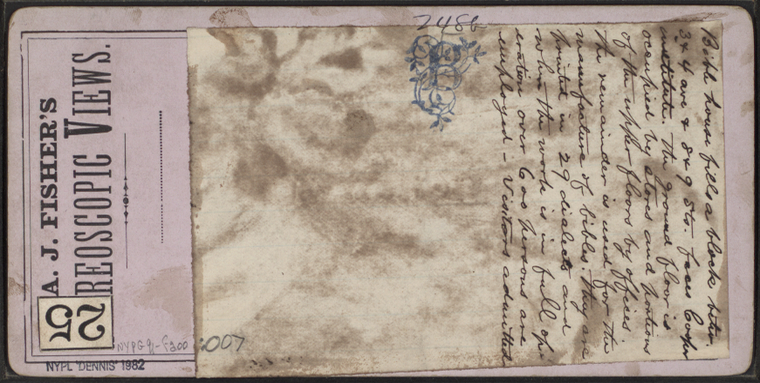 A. J. FISHER'S
REOSCOPIC VIEWS.
25
NYPG 91-F200
:007
NYPL 'DENNIS' 1982
2486
Bible house fills a block betw
3 & 4 ave & 8 & 9 Sts. faces Cooper
institute. The ground floor is
occupied by stores and portions
of the upper floors by offices
the remainder is used for the
manufacture of bibles. They are
printed in 29 dialects and
when the work is in full op-
eration over 600 persons are
employed - Visitors admitted